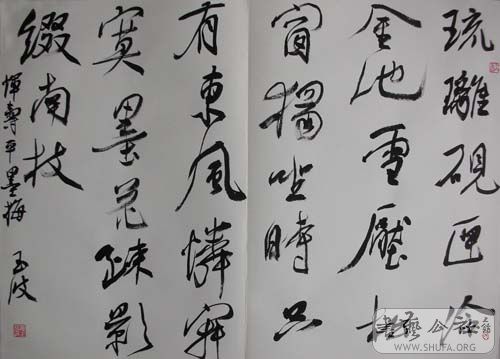 琉璃硯匣冷
金池雪壓松
窗獨坐時只
有東風憐寂
寞墨花疎影
綴南枝
惲壽平墨梅 玉波
書藝公社
WWW.SHUFA.ORG